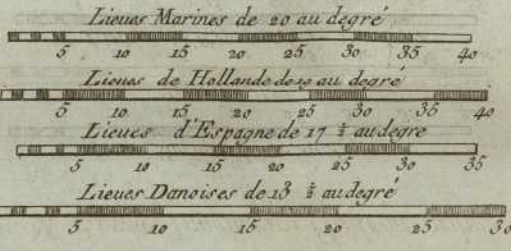 Lieues Marines de 20 au degré
5 10 15 20 25 30 35 40
Lieues de Hollande de 19 au degré
5 10 15 20 25 30 35 40
Lieues d'Espagne de 17 ½ au degré
5 10 15 20 25 30 35
Lieues Danoises de 13 ½ au degré
5 10 15 20 25 30